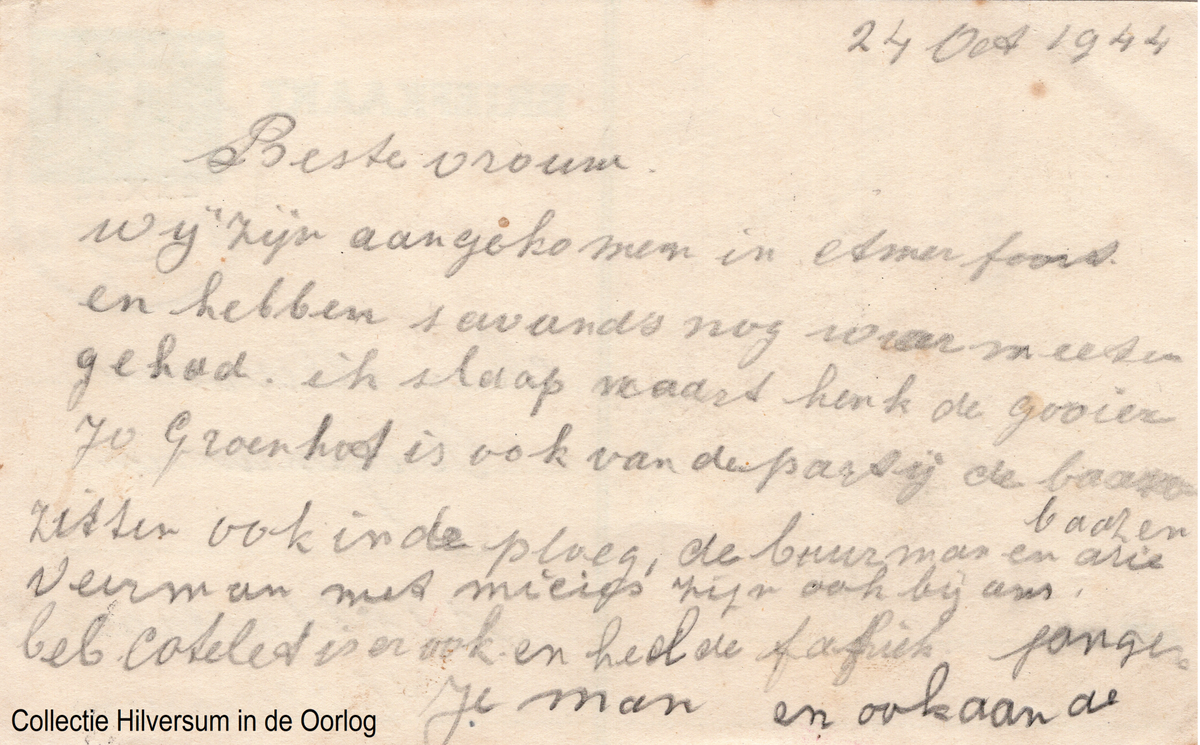 24 Oct 1944
Beste vrouw.
wij zijn aangekomen in Amerfoort
en hebben savands nog warm eeten
gehad. ik slaap naast henk de gooier
Jo Groenhof is ook van de partij de
baazen
zitten ook in de ploeg, de buurman en arie
Veerman met zijn ook bij ons,
beb Cotelet is er ook en heel de fabriek jonge
Je man en ook aan de
Collectie Hilversum in de Oorlog